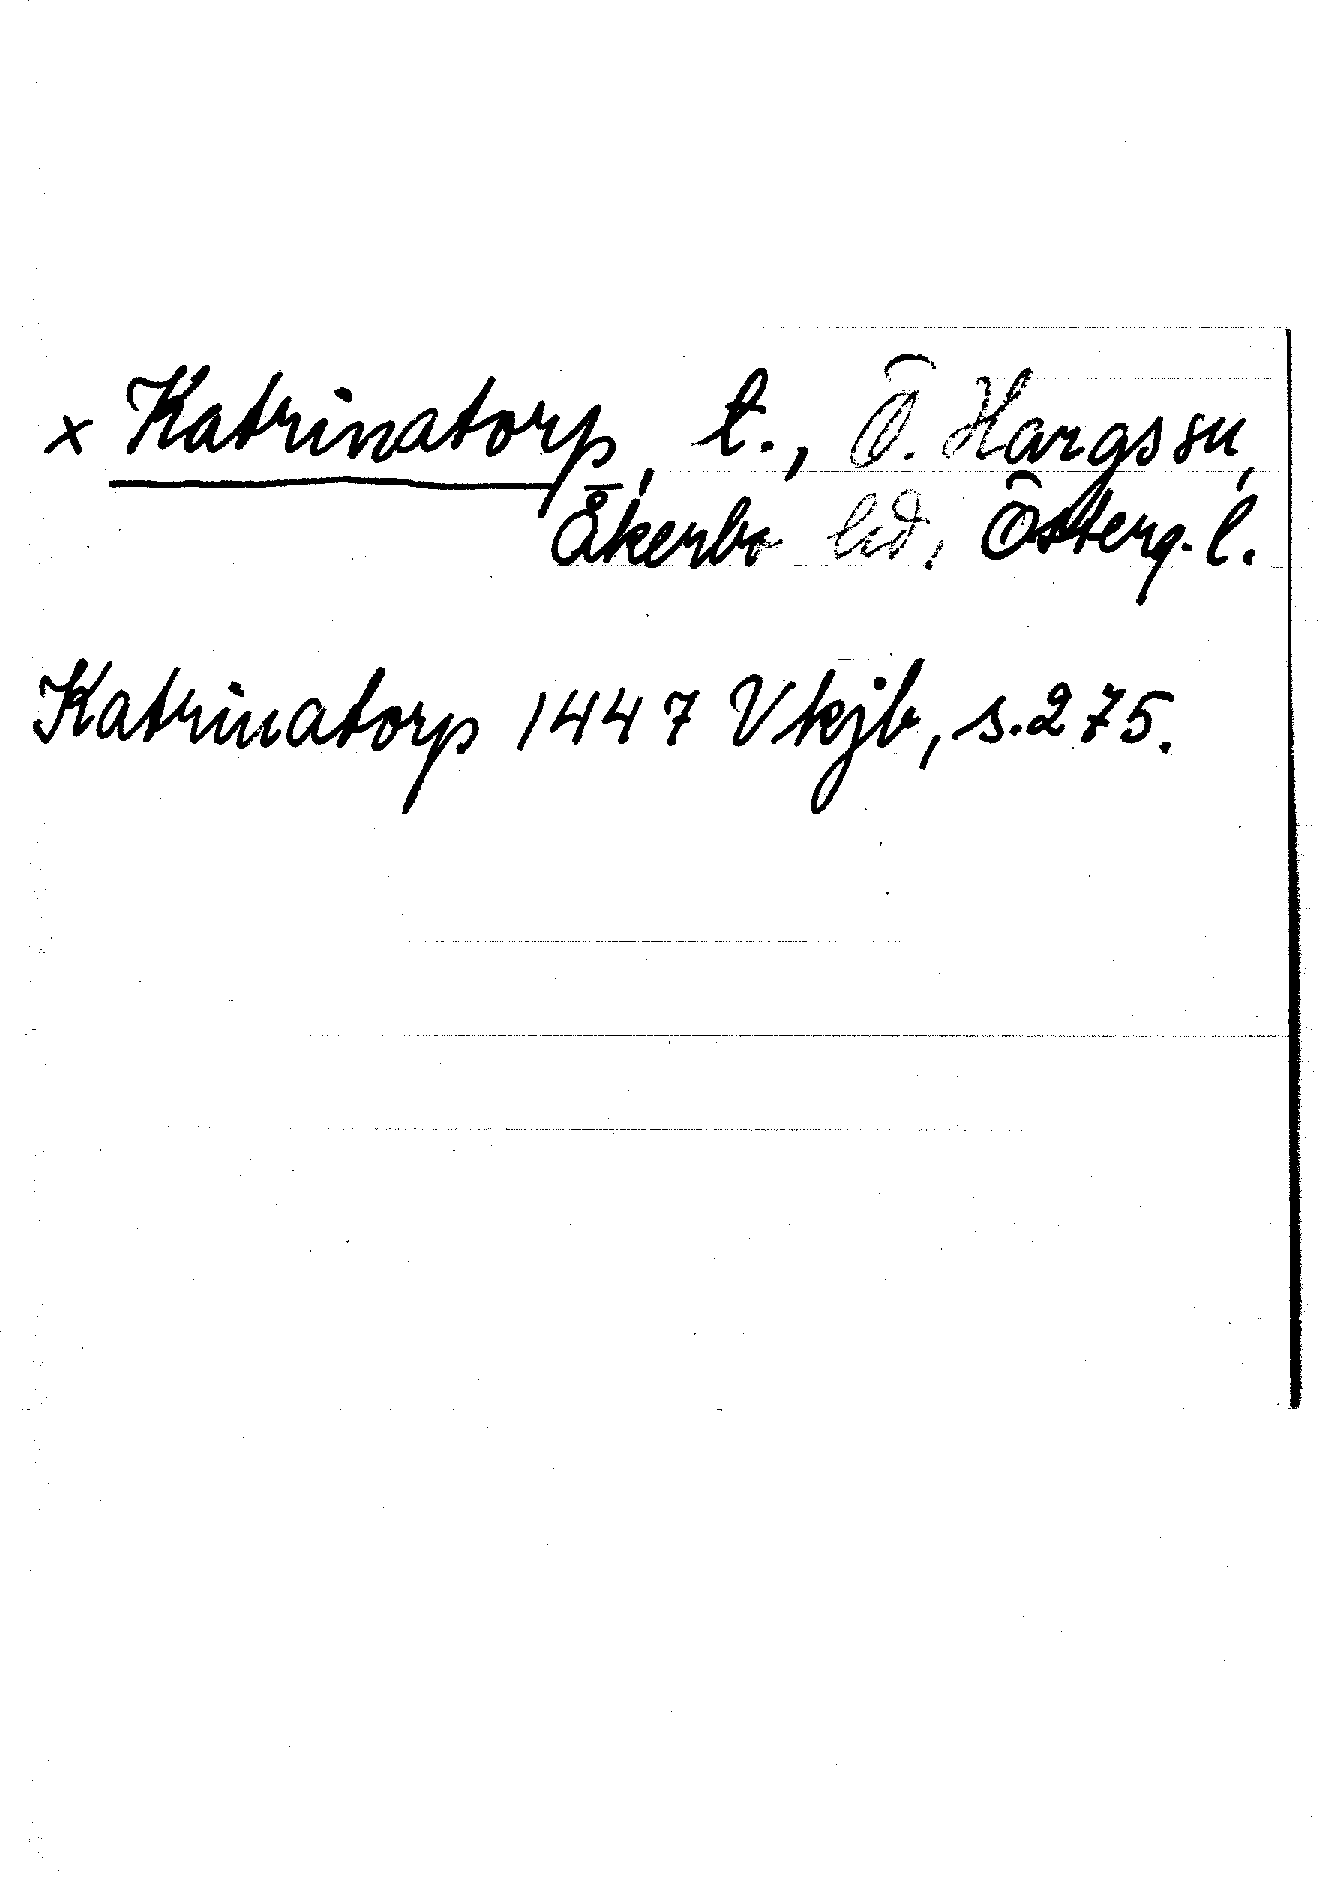 x Katrinatorp, t., Ö. Hargs sn,
Åkerbo hd, Österg. l.
Katrinatorp 1447 Vkjb, s. 275.